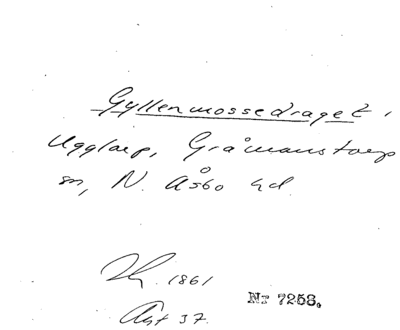 Gyllenmossedraget,
Ugglarp, Gråmanstorp
sn, N. Åsbo hd.
1861
37.
Nr 7258.